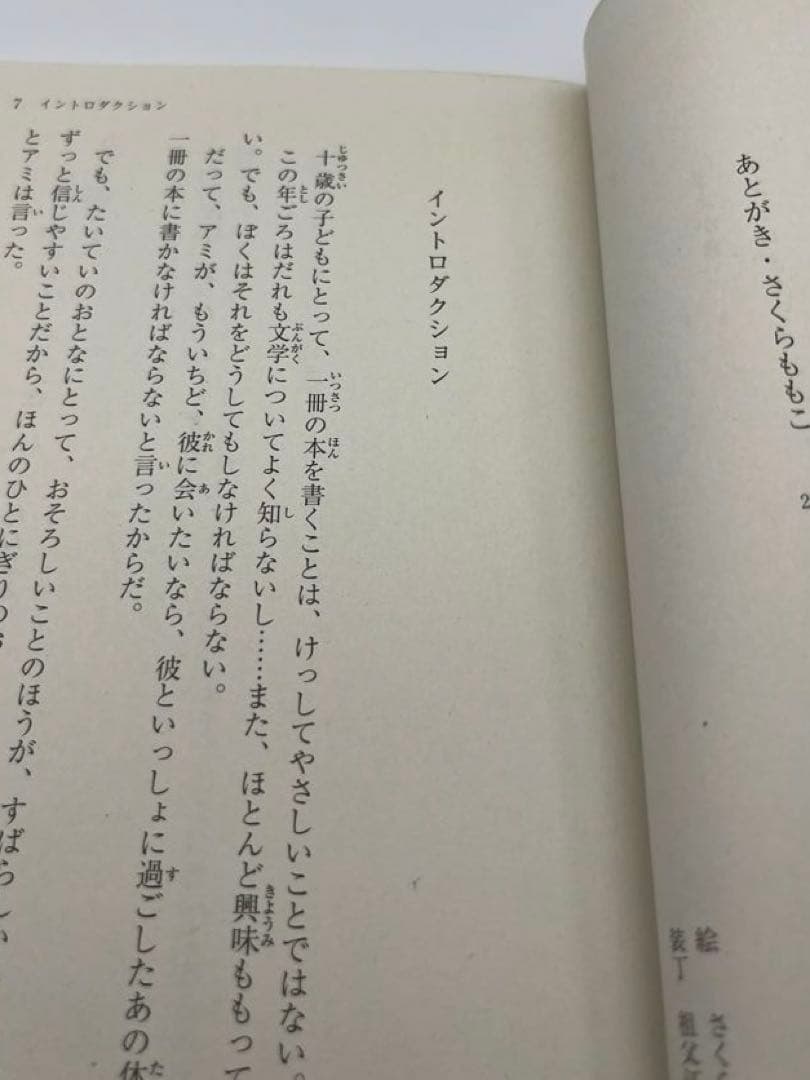 あとがき・さくらももこ
2
絵 さく
装丁 祖父
7 イントロダクション
イントロダクション
十歳の子どもにとって、一冊の本を書くことは、けっしてやさしいことではない。
この年ごろはだれも文学についてよく知らないし……また、ほとんど興味ももって
い。でも、ぼくはそれをどうしてもしなければならない。
だって、アミが、もういちど、彼に会いたいなら、彼といっしょに過ごしたあの体
一冊の本に書かなければならないと言ったからだ。
でも、たいていのおとなにとって、おそろしいことのほうが、すばらしい
ずっと信じやすいことだから、ほんのひとにぎりのお
とアミは言った。